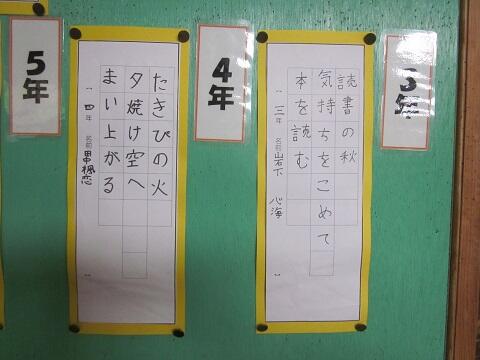 3年
読書の秋
気持ちをこめて
本を読む
三年 名前 岩下 心海
4年
たきびの火
夕焼け空へ
まい上がる
四年 名前 田中楓恋
5年